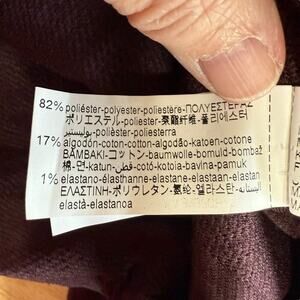 82% poliéster-polyester-polyestère-ΠΟΛΥΕΣΤΕΡΑΣ
ポリエステル-poliester-聚酯纤维-폴리에스터
بوليستير-poliéster-poliesterra
17% algodón-coton-cotton-algodão-katoen-cotone
ΒΑΜΒΑΚΙ-コットン-baumwolle-bomuld-bombaž
棉-면-katun-قطن-cotó-kotoia-bavlna-pamuk
1% elastano-élasthanne-elastane-elastaan-elastan
ΕΛΑΣΤΙΝΗ-ポリウレタン-氨纶-엘라스탄-إيلاستان
elastà-elastanoa